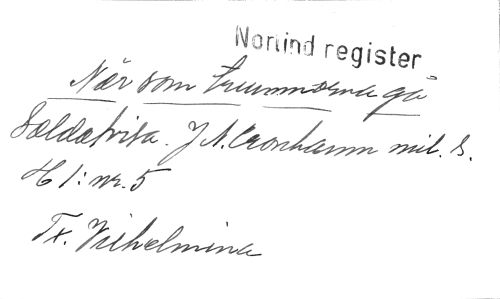 Norlind register
När som trummorna gå
Soldatvisa. J. N. Cronhamn mil. s.
H 1: nr. 5
Tr. Vilhelmina